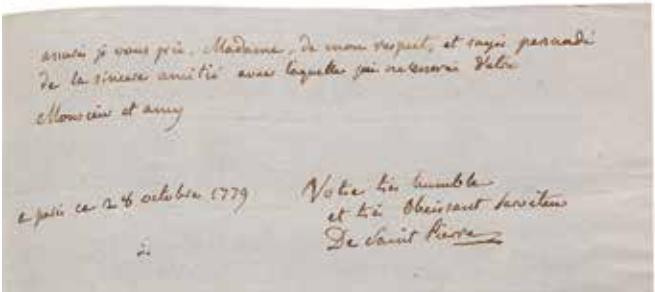 assurés je vous prie, Madame, de mon respect, et soyés persuadé
de la sincere amitié avec laquelle j'ai l'honneur d'etre
Monsieur et amy
a paris ce 28 octobre 1779
Votre très humble
et très obeissant serviteur
De Saint Pierre